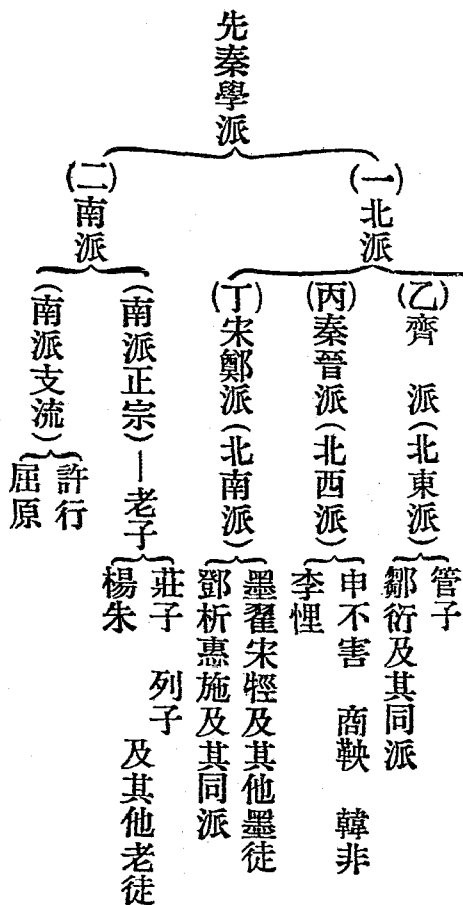 先秦學派
(一)北派
(乙)齊　派(北東派)
管子
鄒衍及其同派
(丙)秦晉派(北西派)
申不害　商鞅　韓非
李悝
(丁)宋鄭派(北南派)
墨翟宋牼及其他墨徒
鄧析惠施及其同派
(二)南派
(南派正宗)—老子
莊子　列子
楊朱
及其他老徒
(南派支流)
許行
屈原